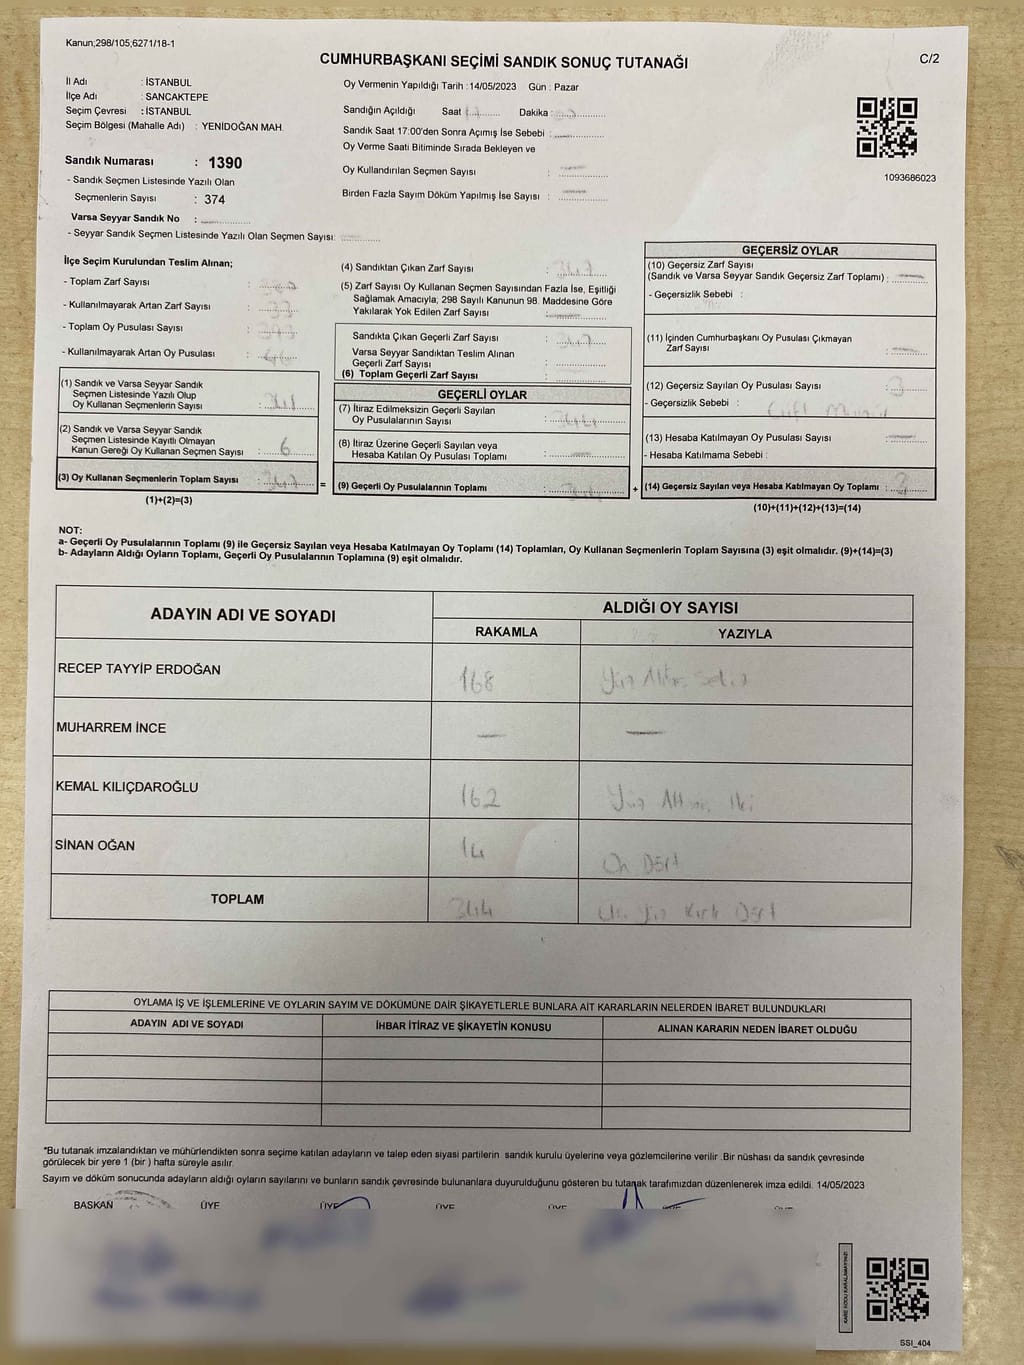 Kanun;298/105;6271/18-1
CUMHURBAŞKANI SEÇİMİ SANDIK SONUÇ TUTANAĞI
C/2
İl Adı : İSTANBUL
İlçe Adı : SANCAKTEPE
Seçim Çevresi : İSTANBUL
Seçim Bölgesi (Mahalle Adı) : YENİDOĞAN MAH.
Sandık Numarası : 1390
- Sandık Seçmen Listesinde Yazılı Olan
Seçmenlerin Sayısı : 374
Varsa Seyyar Sandık No :
- Seyyar Sandık Seçmen Listesinde Yazılı Olan Seçmen Sayısı:
Oy Vermenin Yapıldığı Tarih :14/05/2023 Gün : Pazar
Sandığın Açıldığı Saat Dakika
Sandık Saat 17:00'den Sonra Açımış İse Sebebi :
Oy Verme Saati Bitiminde Sırada Bekleyen ve
Oy Kullandırılan Seçmen Sayısı :
Birden Fazla Sayım Döküm Yapılmış İse Sayısı :
1093686023
İlçe Seçim Kurulundan Teslim Alınan;
- Toplam Zarf Sayısı :
- Kullanılmayarak Artan Zarf Sayısı : 33
- Toplam Oy Pusulası Sayısı :
- Kullanılmayarak Artan Oy Pusulası : 46
(1) Sandık ve Varsa Seyyar Sandık
Seçmen Listesinde Yazılı Olup
Oy Kullanan Seçmenlerin Sayısı : 341
(2) Sandık ve Varsa Seyyar Sandık
Seçmen Listesinde Kayıtlı Olmayan
Kanun Gereği Oy Kullanan Seçmen Sayısı : 6
(3) Oy Kullanan Seçmenlerin Toplam Sayısı : 347 =
(1)+(2)=(3)
(4) Sandıktan Çıkan Zarf Sayısı : 347
(5) Zarf Sayısı Oy Kullanan Seçmen Sayısından Fazla İse, Eşitliği
Sağlamak Amacıyla, 298 Sayılı Kanunun 98. Maddesine Göre
Yakılarak Yok Edilen Zarf Sayısı :
Sandıkta Çıkan Geçerli Zarf Sayısı : 347
Varsa Seyyar Sandıktan Teslim Alınan
Geçerli Zarf Sayısı :
(6) Toplam Geçerli Zarf Sayısı :
GEÇERLİ OYLAR
(7) İtiraz Edilmeksizin Geçerli Sayılan
Oy Pusulalarının Sayısı : 344
(8) İtiraz Üzerine Geçerli Sayılan veya
Hesaba Katılan Oy Pusulası Toplamı :
(9) Geçerli Oy Pusulalarının Toplamı : 344 +
GEÇERSİZ OYLAR
(10) Geçersiz Zarf Sayısı
(Sandık ve Varsa Seyyar Sandık Geçersiz Zarf Toplamı) :
- Geçersizlik Sebebi :
(11) İçinden Cumhurbaşkanı Oy Pusulası Çıkmayan
Zarf Sayısı :
(12) Geçersiz Sayılan Oy Pusulası Sayısı : 3
- Geçersizlik Sebebi : Çift Mühür
(13) Hesaba Katılmayan Oy Pusulası Sayısı :
- Hesaba Katılmama Sebebi :
(14) Geçersiz Sayılan veya Hesaba Katılmayan Oy Toplamı : 3
(10)+(11)+(12)+(13)=(14)
NOT:
a- Geçerli Oy Pusulalarının Toplamı (9) ile Geçersiz Sayılan veya Hesaba Katılmayan Oy Toplamı (14) Toplamları, Oy Kullanan Seçmenlerin Toplam Sayısına (3) eşit olmalıdır. (9)+(14)=(3)
b- Adayların Aldığı Oyların Toplamı, Geçerli Oy Pusulalarının Toplamına (9) eşit olmalıdır.
ADAYIN ADI VE SOYADI
ALDIĞI OY SAYISI
RAKAMLA YAZIYLA
RECEP TAYYİP ERDOĞAN 168 Yüz Altmış Sekiz
MUHARREM İNCE — —
KEMAL KILIÇDAROĞLU 162 Yüz Altmış İki
SİNAN OĞAN 14 On Dört
TOPLAM 344 Üç Yüz Kırk Dört
OYLAMA İŞ VE İŞLEMLERİNE VE OYLARIN SAYIM VE DÖKÜMÜNE DAİR ŞİKAYETLERLE BUNLARA AİT KARARLARIN NELERDEN İBARET BULUNDUKLARI
ADAYIN ADI VE SOYADI İHBAR İTİRAZ VE ŞİKAYETİN KONUSU ALINAN KARARIN NEDEN İBARET OLDUĞU
*Bu tutanak imzalandıktan ve mühürlendikten sonra seçime katılan adayların ve talep eden siyasi partilerin sandık kurulu üyelerine veya gözlemcilerine verilir .Bir nüshası da sandık çevresinde
görülecek bir yere 1 (bir ) hafta süreyle asılır.
Sayım ve döküm sonucunda adayların aldığı oyların sayılarını ve bunların sandık çevresinde bulunanlara duyurulduğunu gösteren bu tutanak tarafımızdan düzenlenerek imza edildi. 14/05/2023
BAŞKAN ÜYE ÜYE ÜYE ÜYE ÜYE
KARE KODU KARALAMAYINIZ!
SSI_404